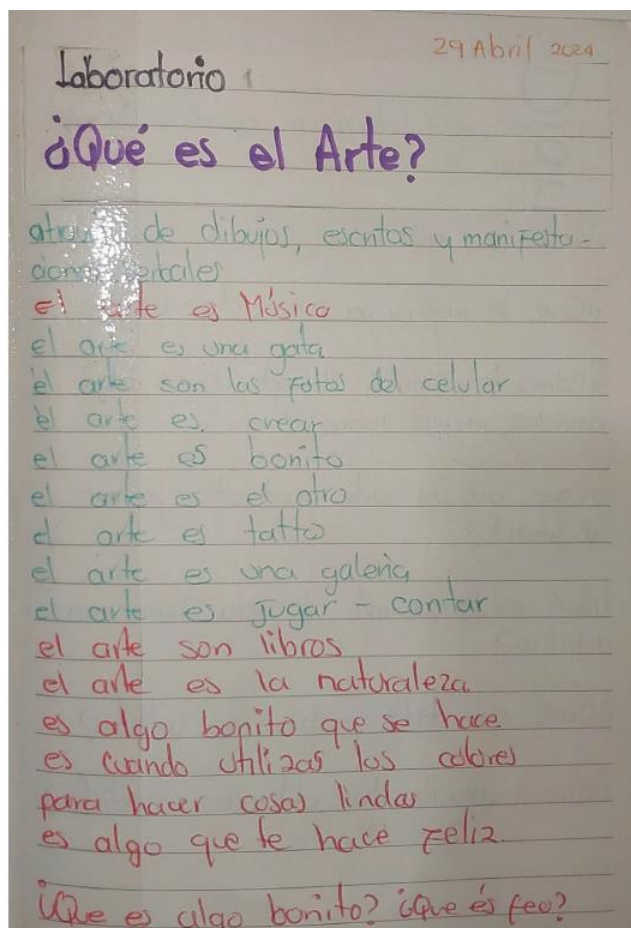 29 Abril 2024
Laboratorio 1
¿Qué es el Arte?
de dibujos, escritos y manifesta-
ciones verbales
el arte es Música
el arte es una gata
el arte son las fotos del celular
el arte es. crear
el arte es bonito
el arte es el otro
el arte es tatto
el arte es una galería
el arte es Jugar - contar
el arte son libros
el arte es la naturaleza
es algo bonito que se hace
es cuando utilizas los colores
para hacer cosas lindas
es algo que te hace Feliz.
¿Que es algo bonito? ¿Que és feo?